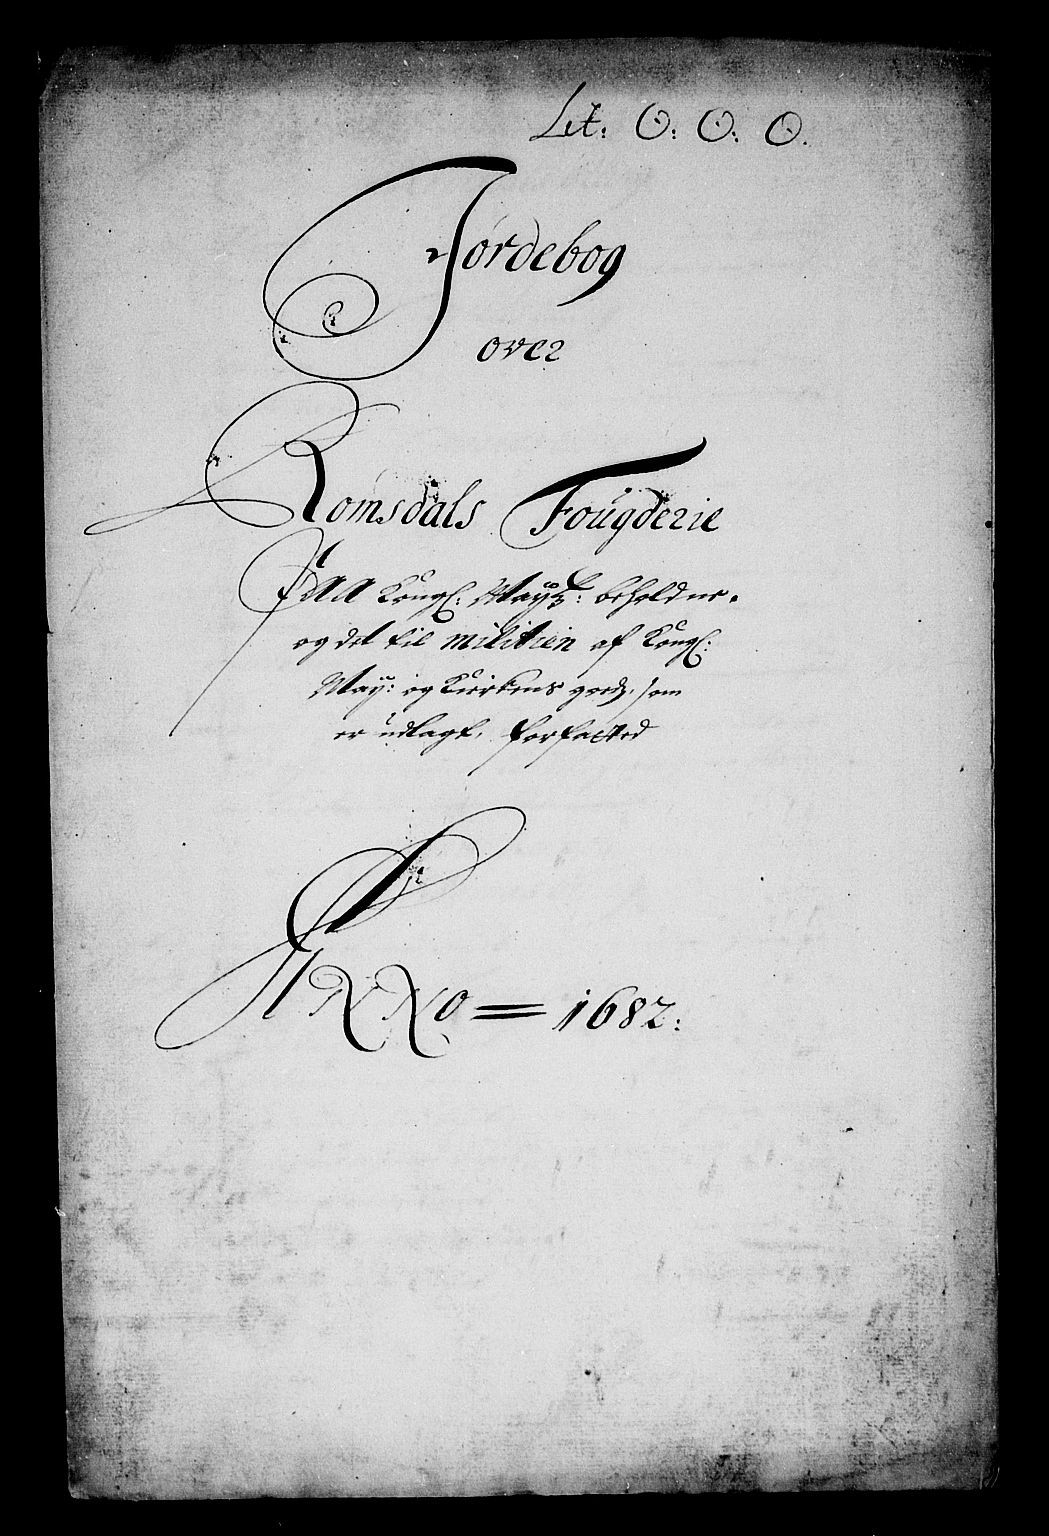 Lit: O: O: O.
Jordebog
over
Romsdals Fougderie
Paa Kongl: Mayts: beholdne.
og det til militien af Kongl:
May: og Kierkens godz, som
er udlagt, forfatted
ANNO = 1682: